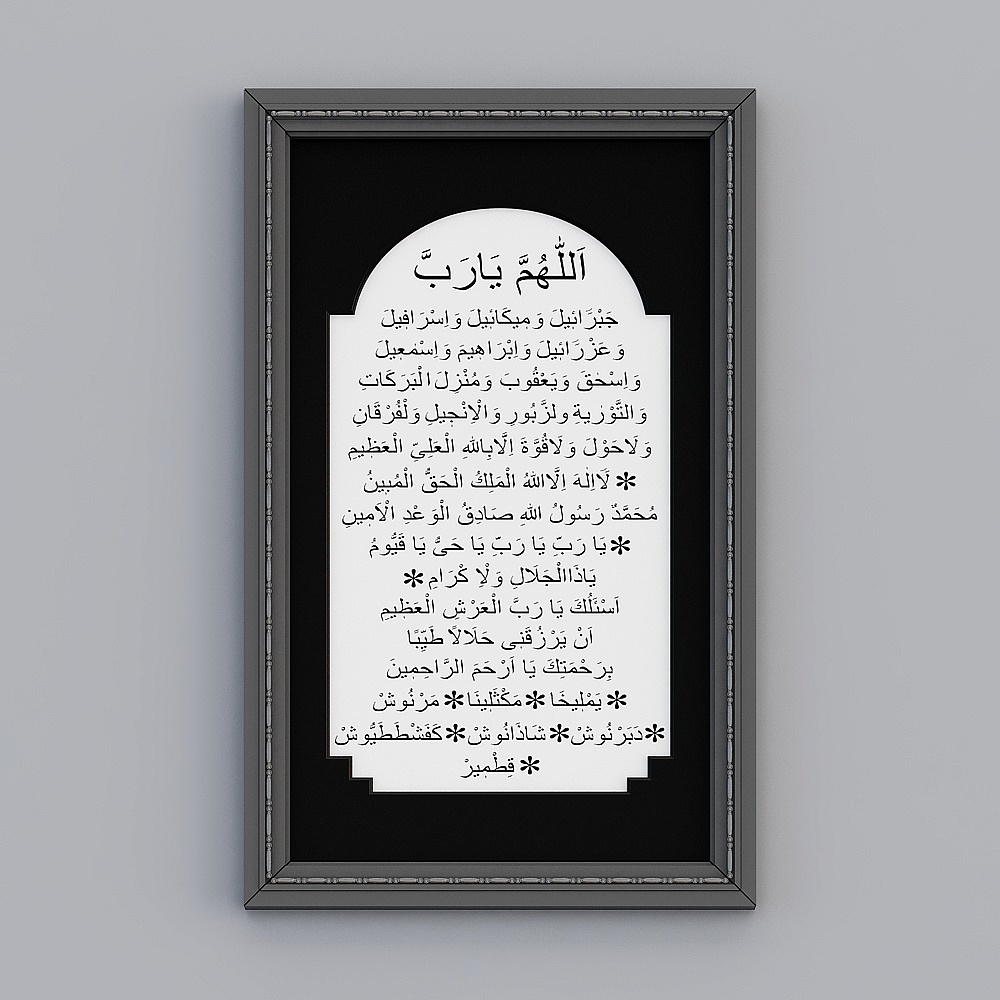 اَللّٰهُمَّ يَارَبَّ
جَبْرَائِيلَ وَمِيكَائِيلَ وَاِسْرَافِيلَ
وَعَزْرَائِيلَ وَاِبْرَاهِيمَ وَاِسْمٰعِيلَ
وَاِسْحٰقَ وَيَعْقُوبَ وَمُنْزِلَ الْبَرَكَاتِ
وَالتَّوْرٰيةِ ولزَّبُورِ وَالْاِنْجِيلِ وَلْفُرْقَانِ
وَلَاحَوْلَ وَلَاقُوَّةَ اِلَّابِاللهِ الْعَلِىِّ الْعَظِيمِ
✻ لَااِلٰهَ اِلَّااللهُ الْمَلِكُ الْحَقُّ الْمُبِينُ
مُحَمَّدٌ رَسُولُ اللهِ صَادِقُ الْوَعْدِ الْاَمِينِ
✻ يَا رَبِّ يَا رَبِّ يَا حَىُّ يَا قَيُّومُ
يَاذَاالْجَلَالِ وَلْاِ كْرَامِ ✻
اَسْئَلُكَ يَا رَبَّ الْعَرْشِ الْعَظِيمِ
اَنْ يَرْزُقَنِى حَلَالًا طَيِّبًا
بِرَحْمَتِكَ يَا اَرْحَمَ الرَّاحِمِينَ
✻ يَمْلِيخَا ✻ مَكْثَلِينَا ✻ مَرْنُوشْ
✻ دَبَرْنُوشْ ✻ شَاذَانُوشْ ✻ كَفَشْطَطَيُّوشْ
✻ قِطْمِيرْ